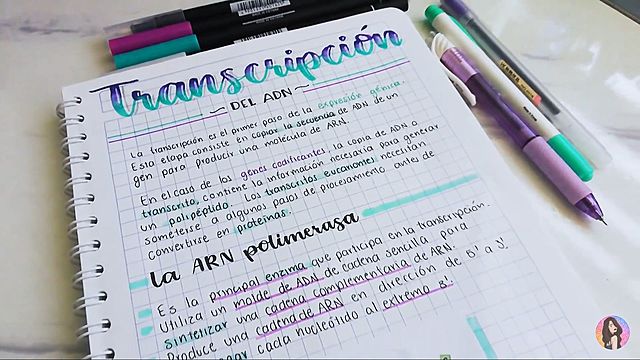 Transcripción
DEL ADN
La transcripción es el primer paso de la expresión génica.
Esta etapa consiste en copiar la secuencia de ADN de un
gen para producir una molécula de ARN.
En el caso de los genes codificantes, la copia de ADN o
transcrito, contiene la información necesaria para generar
un polipéptido. Los transcritos eucariones necesitan
someterse a algunos pasos de procesamiento antes de
convertirse en proteínas.
la ARN polimerasa
Es la principal enzima que participa en la transcripción.
Utiliza un molde de ADN de cadena sencilla para
sintetizar una cadena complementaria de ARN.
Produce una cadena de ARN en dirección de 5' a 3',
cada nucleótido al extremo 3'.